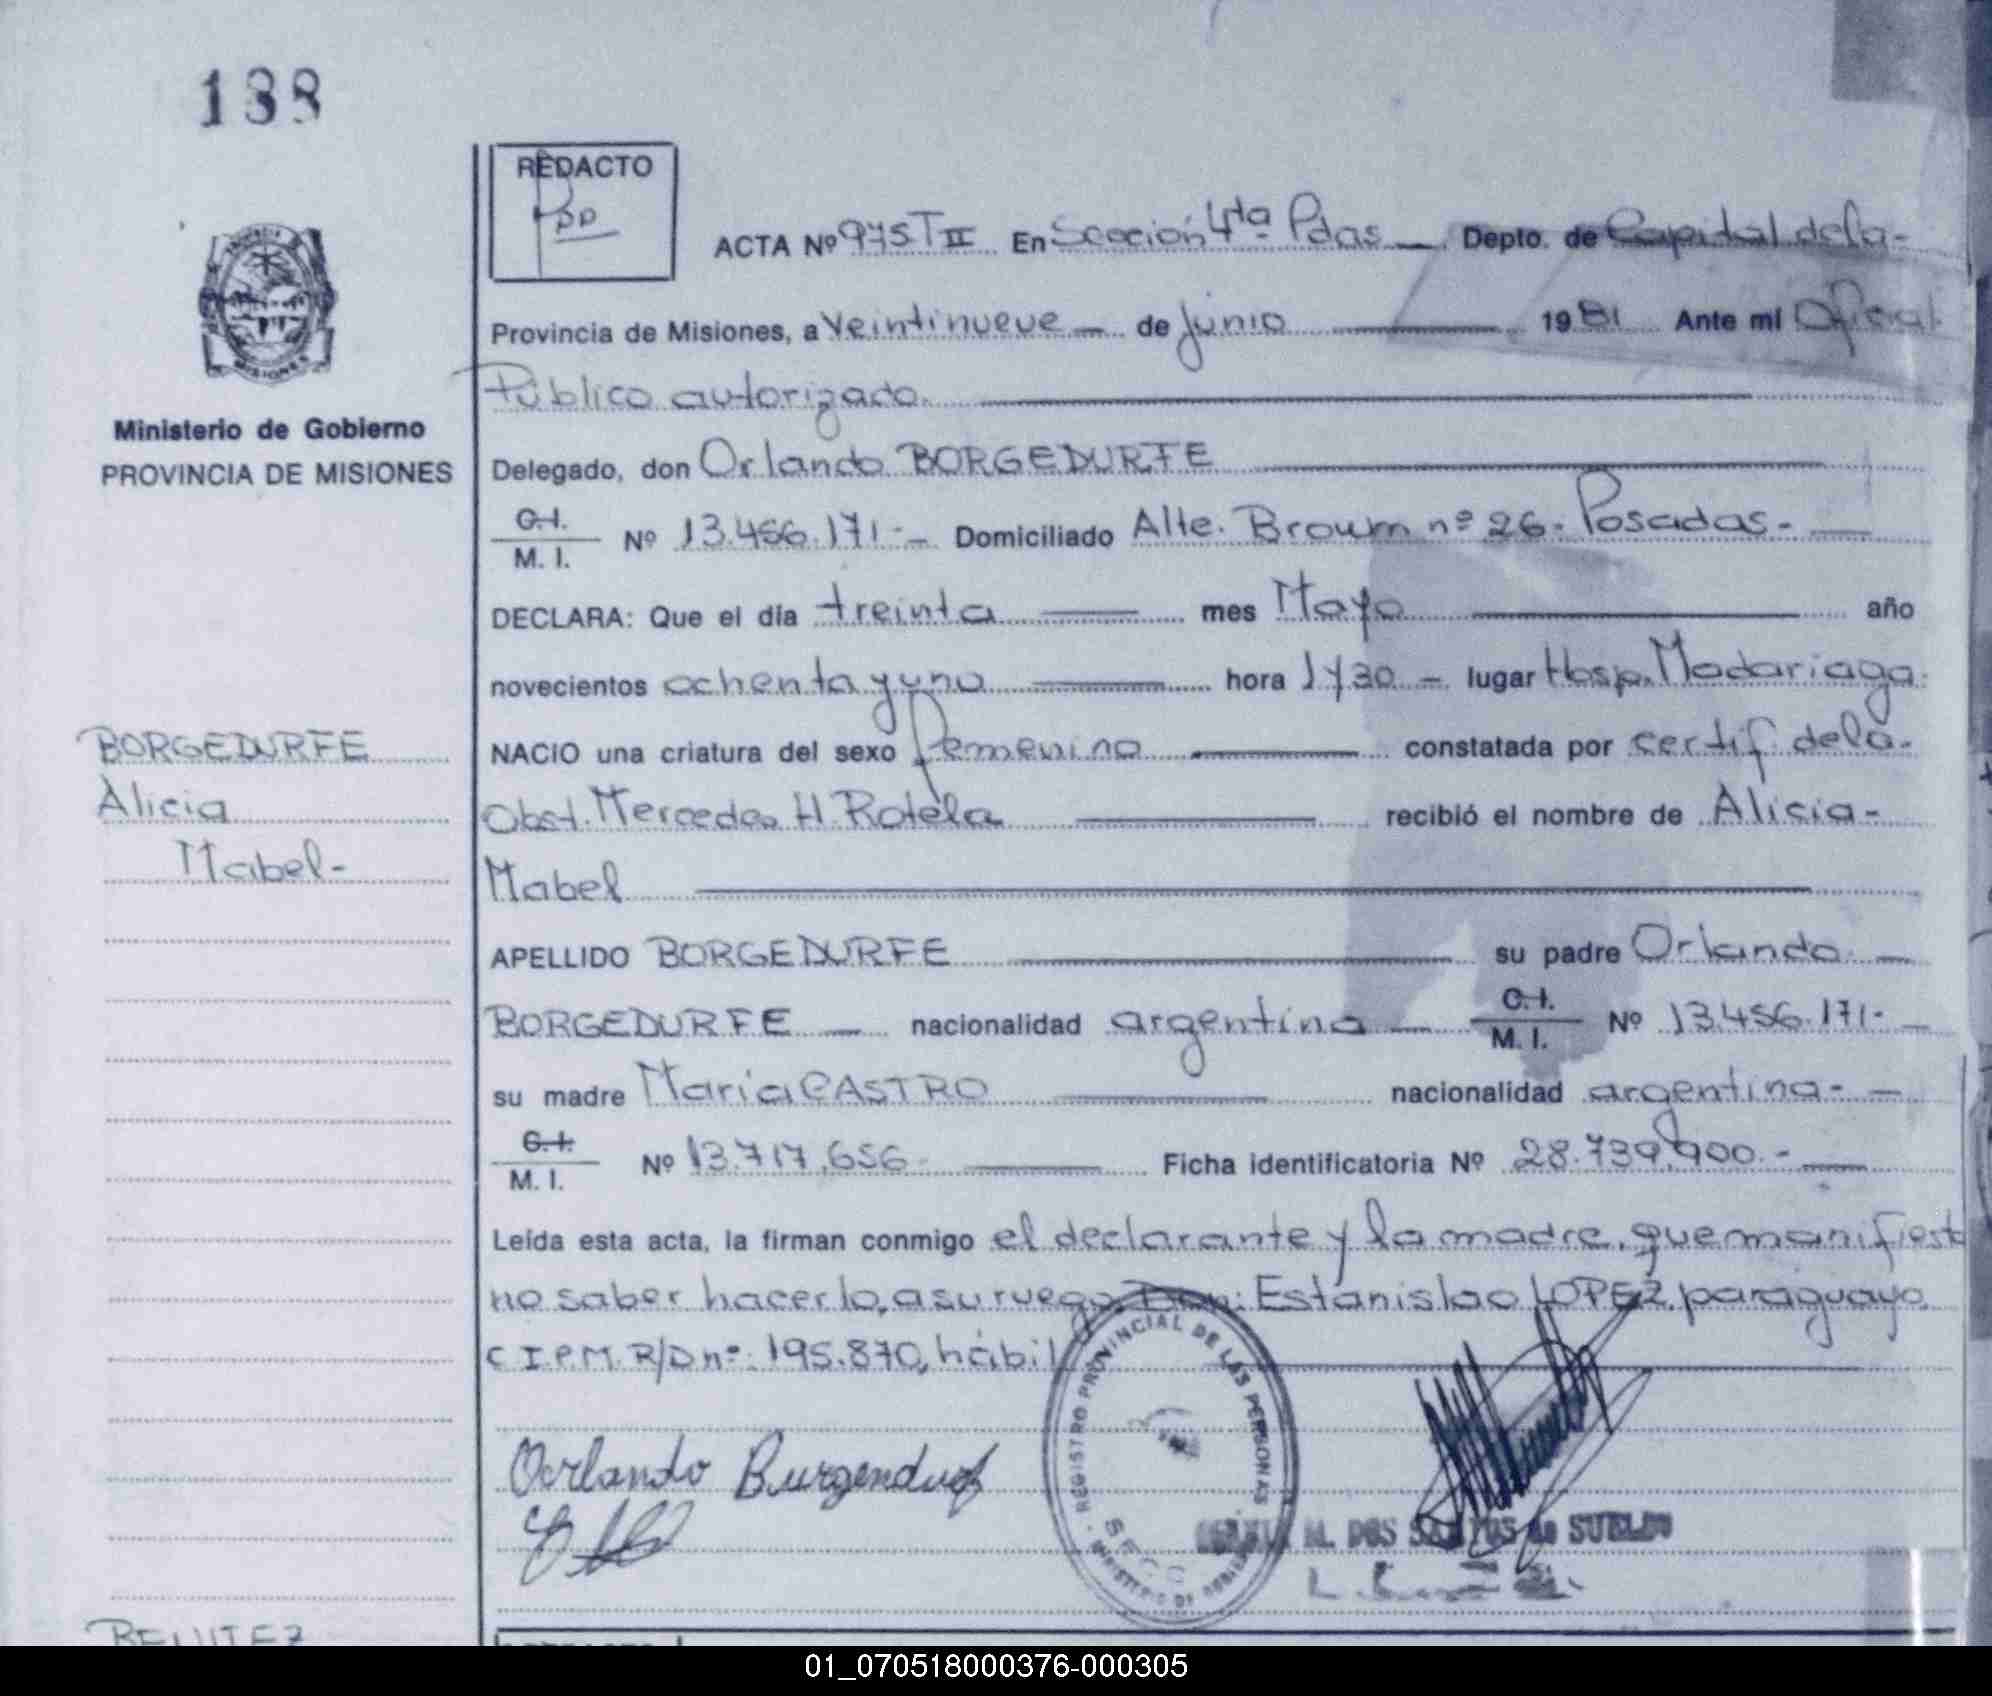 138
REDACTO
ACTA Nº 975 T II En Sección 4ta Pdas Depto. de Capital de la-
Provincia de Misiones, a Veintinueve de junio 1981 Ante mi Oficial
Público autorizado.
Ministerio de Gobierno
PROVINCIA DE MISIONES
Delegado, don Orlando BORGEDURFE
C.I. M. I. Nº 13.456.171.- Domiciliado Alte. Brown nº 26- Posadas-
DECLARA: Que el día treinta mes Mayo año
novecientos ochenta y uno hora 1730 lugar Hosp. Madariaga
NACIO una criatura del sexo femenino constatada por certif. de la-
Obst. Mercedes H. Rotela recibió el nombre de Alicia-
Mabel
BORGEDURFE
Alicia
Mabel-
APELLIDO BORGEDURFE su padre Orlando
BORGEDURFE nacionalidad argentina C.I. M. I. Nº 13.456.171-
su madre María CASTRO nacionalidad argentina-
C.I. M. I. Nº 13.717.656 Ficha identificatoria Nº 28.739.900.-
Leída esta acta, la firman conmigo el declarante y la madre, que manifiesta
no saber hacerlo, a su ruego Don: Estanislao LOPEZ, paraguayo,
C.I.P.M. R/D nº: 195.870, hábil
REGISTRO PROVINCIAL DE LAS PERSONAS
MINISTERIO DE GOBIERNO
Orlando Burgenduf
M. DOS SANTOS de SUELDO
BENITEZ
01_070518000376-000305